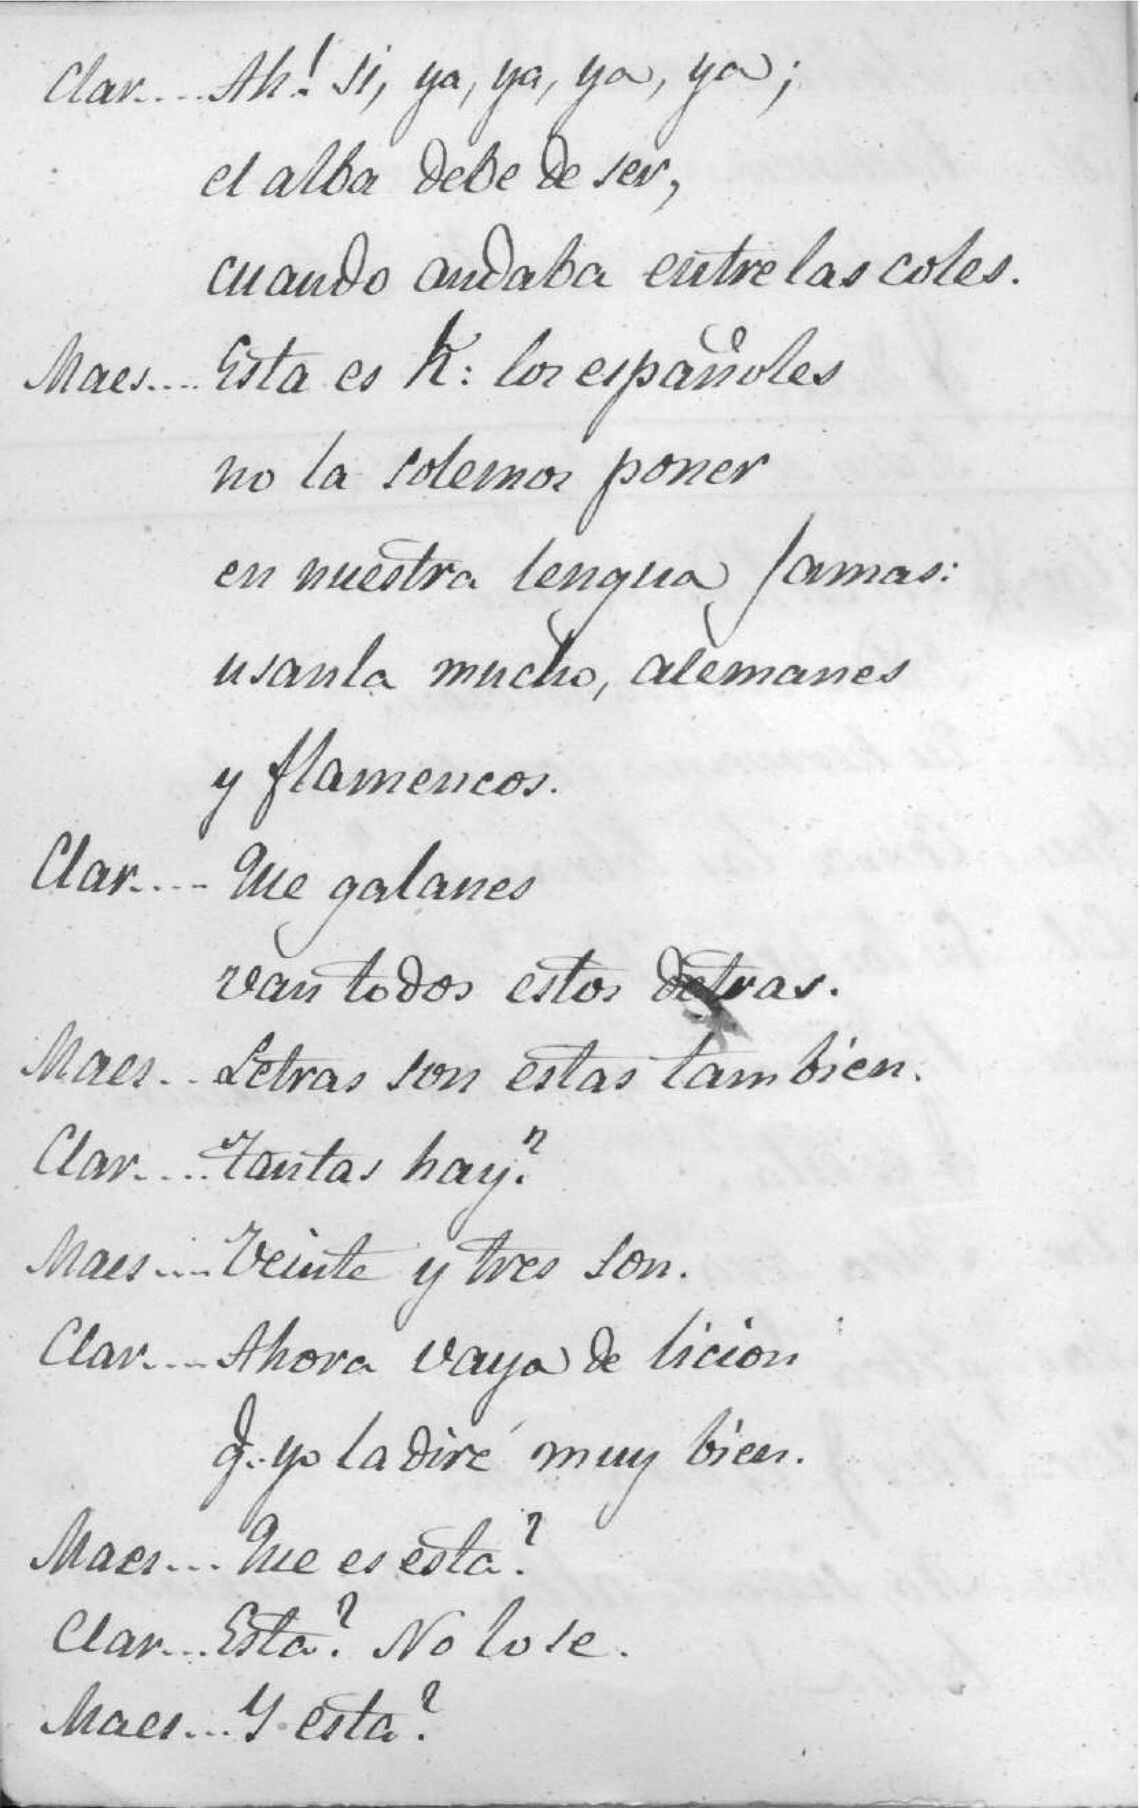 Clar.... Ah! si, ya, ya, ya, ya;
el alba debe de ser,
cuando andaba entre las coles.
Maes.... Esta es K: los españoles
no la solemos poner
en nuestra lengua jamas:
usanla mucho, alemanes
y flamencos.
Clar.... Que galanes
van todos estos detras.
Maes... Letras son estas tambien.
Clar.... Tantas hay?
Maes.... Veinte y tres son.
Clar.... Ahora vaya de licion
q. yo la diré muy bien.
Maes... Que es esta?
Clar... Esta? No lo se.
Maes... Y esta?